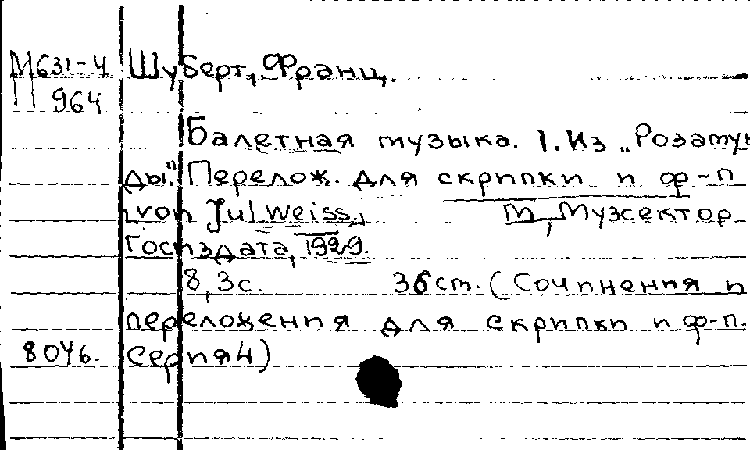 М631-4 Шуберт, Франц.
964
Балетная музыка. 1. Из „Розамун
ды". Перелож. для скрипки и ф-п
[von Jul Weiss.] М., Музсектор
Госиздата, 1929.
8, 3с. 36 ст. (Сочинения и
переложения для скрипки и ф-п.
8046. Серия 4)